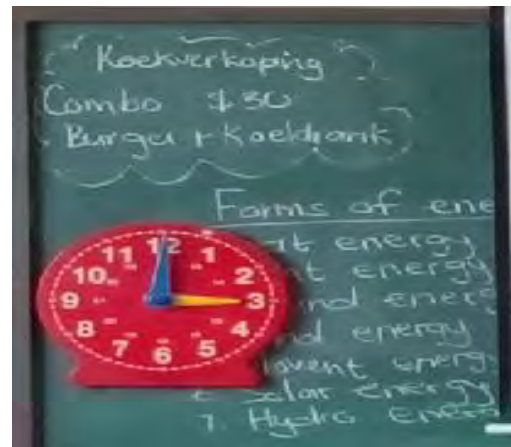 Koekverkoping
Combo $30
Burger + Koeldrank
Forms of ene
energy
energy
energy
energy
energy
Solar energy
7. Hydro energ
12
1
2
3
4
5
6
7
8
9
10
11